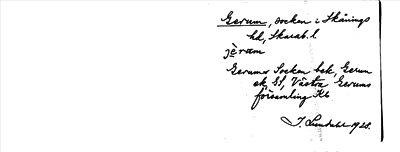 Gerum, socken i Skånings
hd, Skarab. l
jèram
Gerums Socken bok, Gerum
ek bl, Västra Gerums
församling Kb
I. Lundahl 1928.